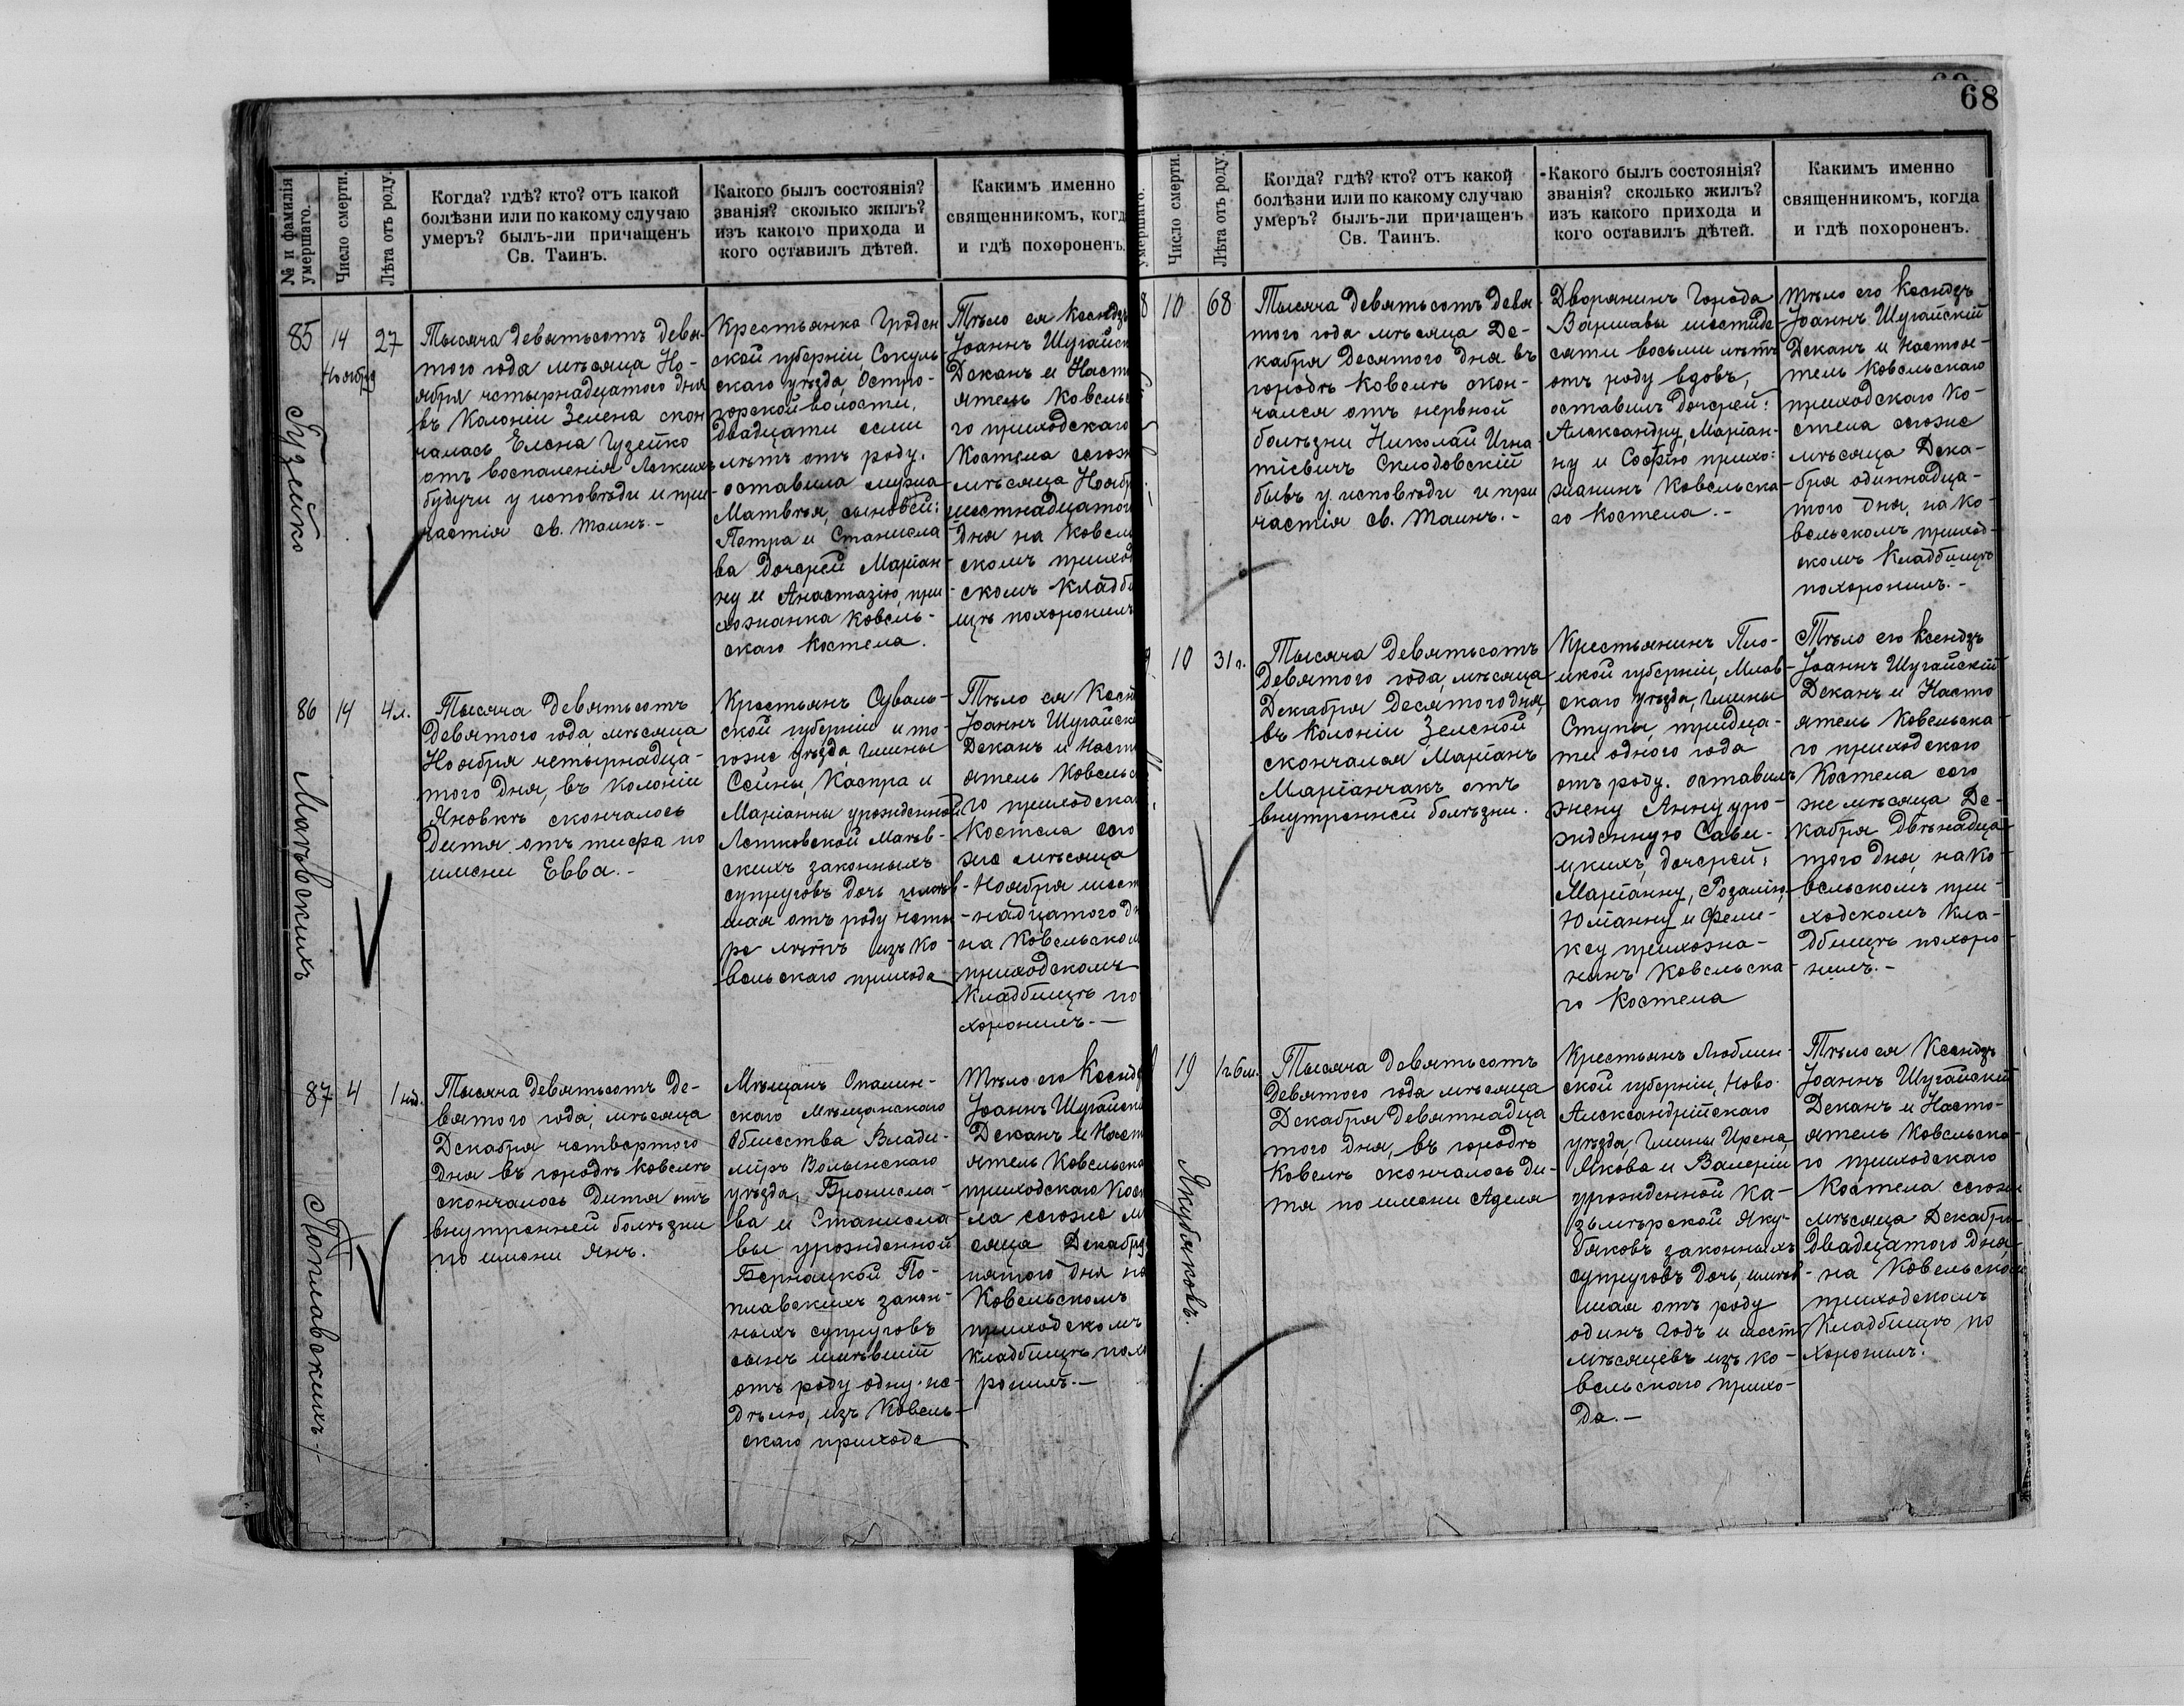 68
№ и фамилія умершаго.
Число смерти.
Лѣта отъ роду.
Когда? гдѣ? кто? отъ какой
болѣзни или по какому случаю
умеръ? былъ-ли причащенъ
Св. Таинъ.
Какого былъ состоянія?
званія? сколько жилъ?
изъ какого прихода и
кого оставилъ дѣтей.
Какимъ именно
священникомъ, когд
и гдѣ похороненъ.
85
Гузейко
14
Ноября
27
Тысяча девятьсотъ девя-
того года мѣсяца Но-
ября четырнадцатого дня
въ Колоніи Зелена скон
чалась Елена Гузейко
отъ воспаленія Легкихъ
будучи у исповѣди и при
частія св. Таинъ.-
Крестьянка Гроден
ской губерніи, Соколь
скаго уѣзда, Остро-
горской волости,
двадцати семи
лѣтъ отъ роду.
оставила мужа
Матвѣя, сыновей:
Петра и Станисла
ва дочерей Маріан
ну и Анастазію, при
хожанка Ковель-
скаго Костела.
Тѣло ея Ксендзъ
Іоаннъ Шугайск
Деканъ и Наст
ятель Ковельс
го приходскаго
Костела сегож
мѣсяца Ноябр
шестнадцатог
дня на Ковел
скомъ приход
скомъ кладби
щѣ похоронилъ
86
Матѣвскихъ
14
4 л.
Тысяча девятьсотъ
девятого года, мѣсяца
Ноября четырнадца-
того дня, въ колоніи
Яновкѣ скончалось
дитя отъ тифа по
имени Евва.-
Крестьянъ Суваль-
ской губерніи и то-
гоже уѣзда, гмины
Сейны, Каспра и
Маріанны урожденной
Летковской Матѣв-
скихъ законныхъ
супруговъ дочь имѣв
шая отъ роду четы
ре лѣтъ изъ Ко-
вельскаго прихода
Тѣло ея Ксен
Іоаннъ Шугайск
Деканъ и Наст
ятель Ковельс
го приходска
Костела сего
же мѣсяца
Ноября шест
надцатого дн
на Ковельском
приходскомъ
кладбищѣ по
хоронилъ.-
87
Поплавскихъ-
4
1 нед.
Тысяча девятьсотъ де-
вятого года, мѣсяца
Декабря четвертого
дня въ городѣ Ковелѣ
скончалось дитя отъ
внутренней болѣзни
по имени Янъ.
Мѣщанъ Опалин-
скаго Мѣщанскаго
Общества Влади-
міръ Волынскаго
уѣзда, Бронисла-
ва и Станисла
вы урожденной
Бернацкой По-
плавскихъ закон-
ныхъ супруговъ
сынъ имѣвшій
отъ роду одну не-
дѣлю, изъ Ковель-
скаго прихода
Тѣло его Ксенд
Іоаннъ Шугайск
Деканъ и Наст
ятель Ковельска
приходскаго Кост
ла сегоже м
сяца Декабря
пятого дня на
Ковельскомъ
приходскомъ
кладбищѣ похо
ронилъ.-
умершаго.
Число смерти.
Лѣта отъ роду.
Когда? гдѣ? кто? отъ какой
болѣзни или по какому случаю
умеръ? былъ-ли причащенъ
Св. Таинъ.
Какого былъ состоянія?
званія? сколько жилъ?
изъ какого прихода и
кого оставилъ дѣтей.
Какимъ именно
священникомъ, когда
и гдѣ похороненъ.
8
10
68
Тысяча девятьсотъ девя-
того года мѣсяца Де-
кабря Десятого дня въ
городѣ Ковелѣ скон-
чался отъ нервной
болѣзни Николай Игна-
тіевичъ Склодовскій
бывъ у исповѣди и при
частія св. Таинъ.-
Дворянинъ Города
Варшавы шестиде
сяти восьми лѣтъ
отъ роду вдовъ,
оставилъ дочерей:
Александру, Маріан-
ну и Софію прихо-
жанинъ Ковельска
го Костела.-
Тѣло его Ксендзъ
Іоаннъ Шугайскій
Деканъ и Настоя-
тель Ковельскаго
приходскаго Ко-
стела сегоже
мѣсяца Дека-
бря одиннадца-
того дня, на Ко-
вельскомъ приход-
скомъ Кладбищѣ
похоронилъ.-
10
31 г.
Тысяча девятьсотъ
девятого года, мѣсяца
Декабря Десятого дня,
въ колоніи Земской
скончался Маріанъ
Маріанчакъ отъ
внутренней болѣзни.
Крестьянинъ Пло-
цкой губерніи, Млав-
скаго уѣзда, гмины
Ступы, тридца-
ти одного года
отъ роду. оставилъ
жену Анну уро-
жденную Сави-
цкихъ, дочерей:
Маріанну, Розалію,
Юліанну и Фели-
ксу прихожа-
нинъ Ковельска-
го Костела
Тѣло его Ксендзъ
Іоаннъ Шугайскій
Деканъ и Насто
ятель Ковельска-
го приходскаго
Костела сего
же мѣсяца Де-
кабря двѣнадца-
того дня, на Ко-
вельскомъ при-
ходскомъ кла-
дбищѣ похоро-
нилъ.-
Якубяковъ.
19
1 г. 6 м.
Тысяча девятьсотъ
девятого года мѣсяца
Декабря девятнадца
того дня, въ городѣ
Ковелѣ скончалось ди-
тя по имени Аделя
Крестьянъ Люблин-
ской губерніи, Ново-
Александрійскаго
уѣзда, гмины Ирена,
Якова и Валеріи
урожденной Ка-
зьмѣрской Яку-
бяковъ законныхъ
супруговъ дочь, имѣв-
шая отъ роду
одинъ годъ и шесть
мѣсяцевъ изъ Ко-
вельскаго прихо-
да.-
Тѣло ея Ксендзъ
Іоаннъ Шугайскій
Деканъ и Насто-
ятель Ковельска-
го приходскаго
Костела сегоже
мѣсяца Декабря
двадцатого дня
на Ковельском
приходскомъ
Кладбищѣ по
хоронилъ.